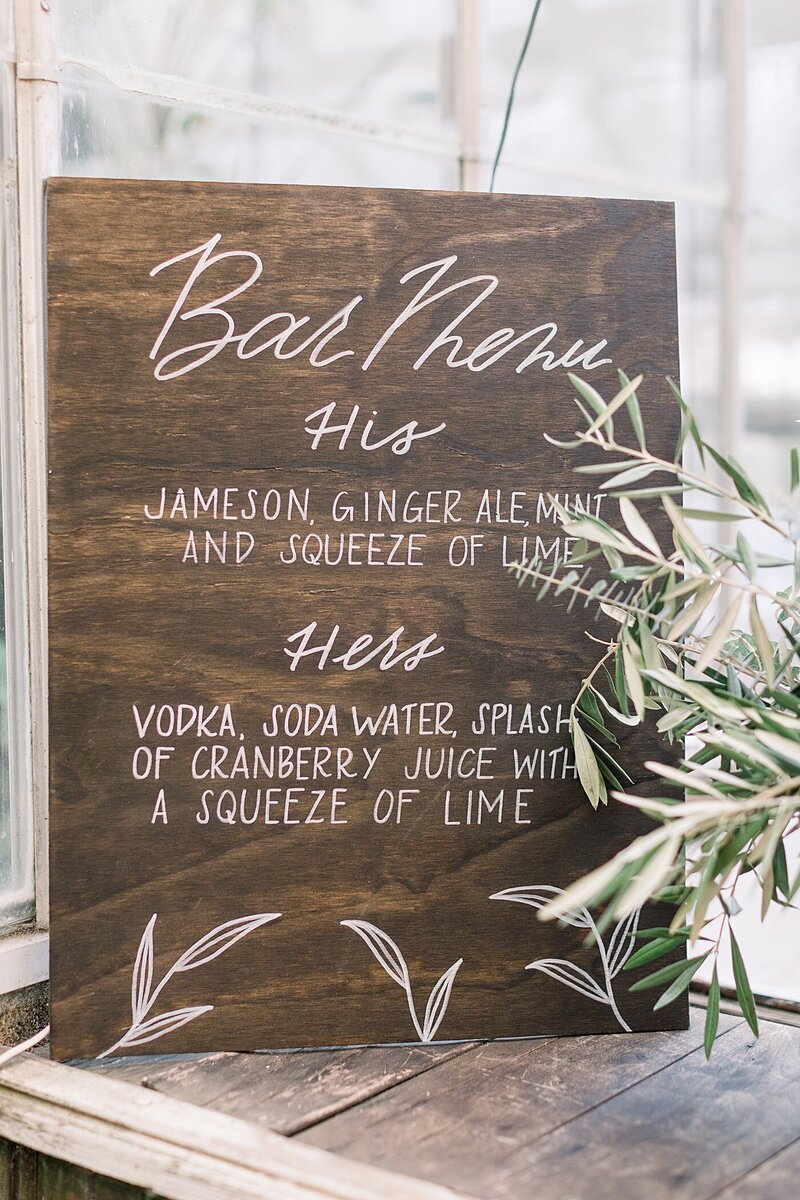 Bar Menu
His
JAMESON, GINGER ALE, MINT
AND SQUEEZE OF LIME
Hers
VODKA, SODA WATER, SPLASH
OF CRANBERRY JUICE WITH
A SQUEEZE OF LIME